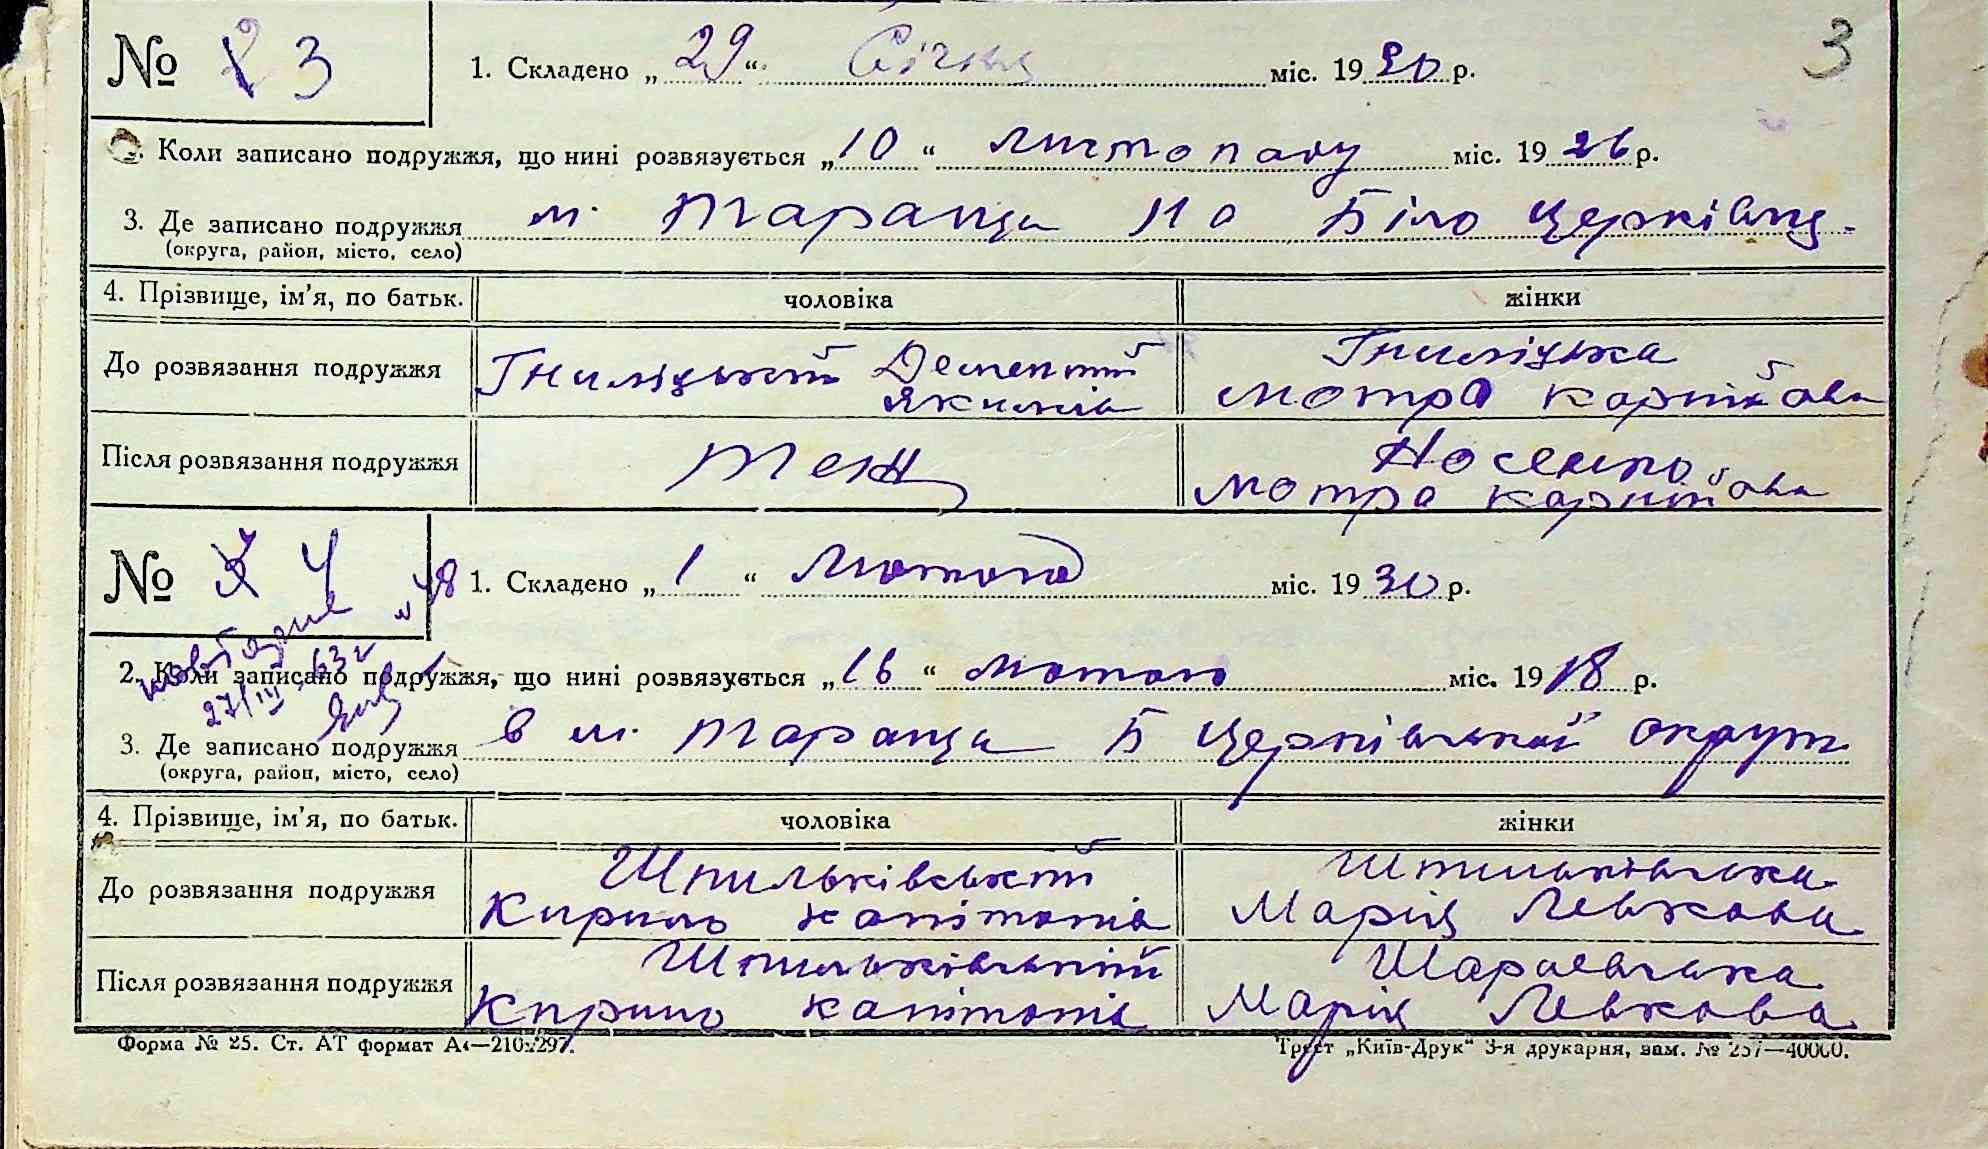 № 3 1. Складено „29“ Січня міс. 1930 р. 3
2. Коли записано подружжя, що нині розвязується „10“ листопаду міс. 1926 р.
3. Де записано подружжя м. Тараща на Біло Церківщ.
(округа, район, місто, село)
4. Прізвище, ім’я, по батьк. чоловіка жінки
До розвязання подружжя Гнилицький Дементій Якимів Гнилицька Мотра Карпівова
Після розвязання подружжя теж Носенко Мотра
№ 4 1. Складено „1“ Лютого міс. 1930 р.
27/III 63 г № 48
2. Коли записано подружжя, що нині розвязується „16“ лютого міс. 1918 р.
3. Де записано подружжя в м. Тараща Б Церківській округи
(округа, район, місто, село)
4. Прізвище, ім’я, по батьк. чоловіка жінки
До розвязання подружжя Шпильківський Шпильківська
Кирило Капітонів Марія Левкова
Після розвязання подружжя Шпильківський Шараевська
Кирило Капітонів Марія Левкова
Форма № 25. Ст. АТ формат А4—210×297. Трест „Київ-Друк“ 3-я друкарня, зам. № 257—40000.